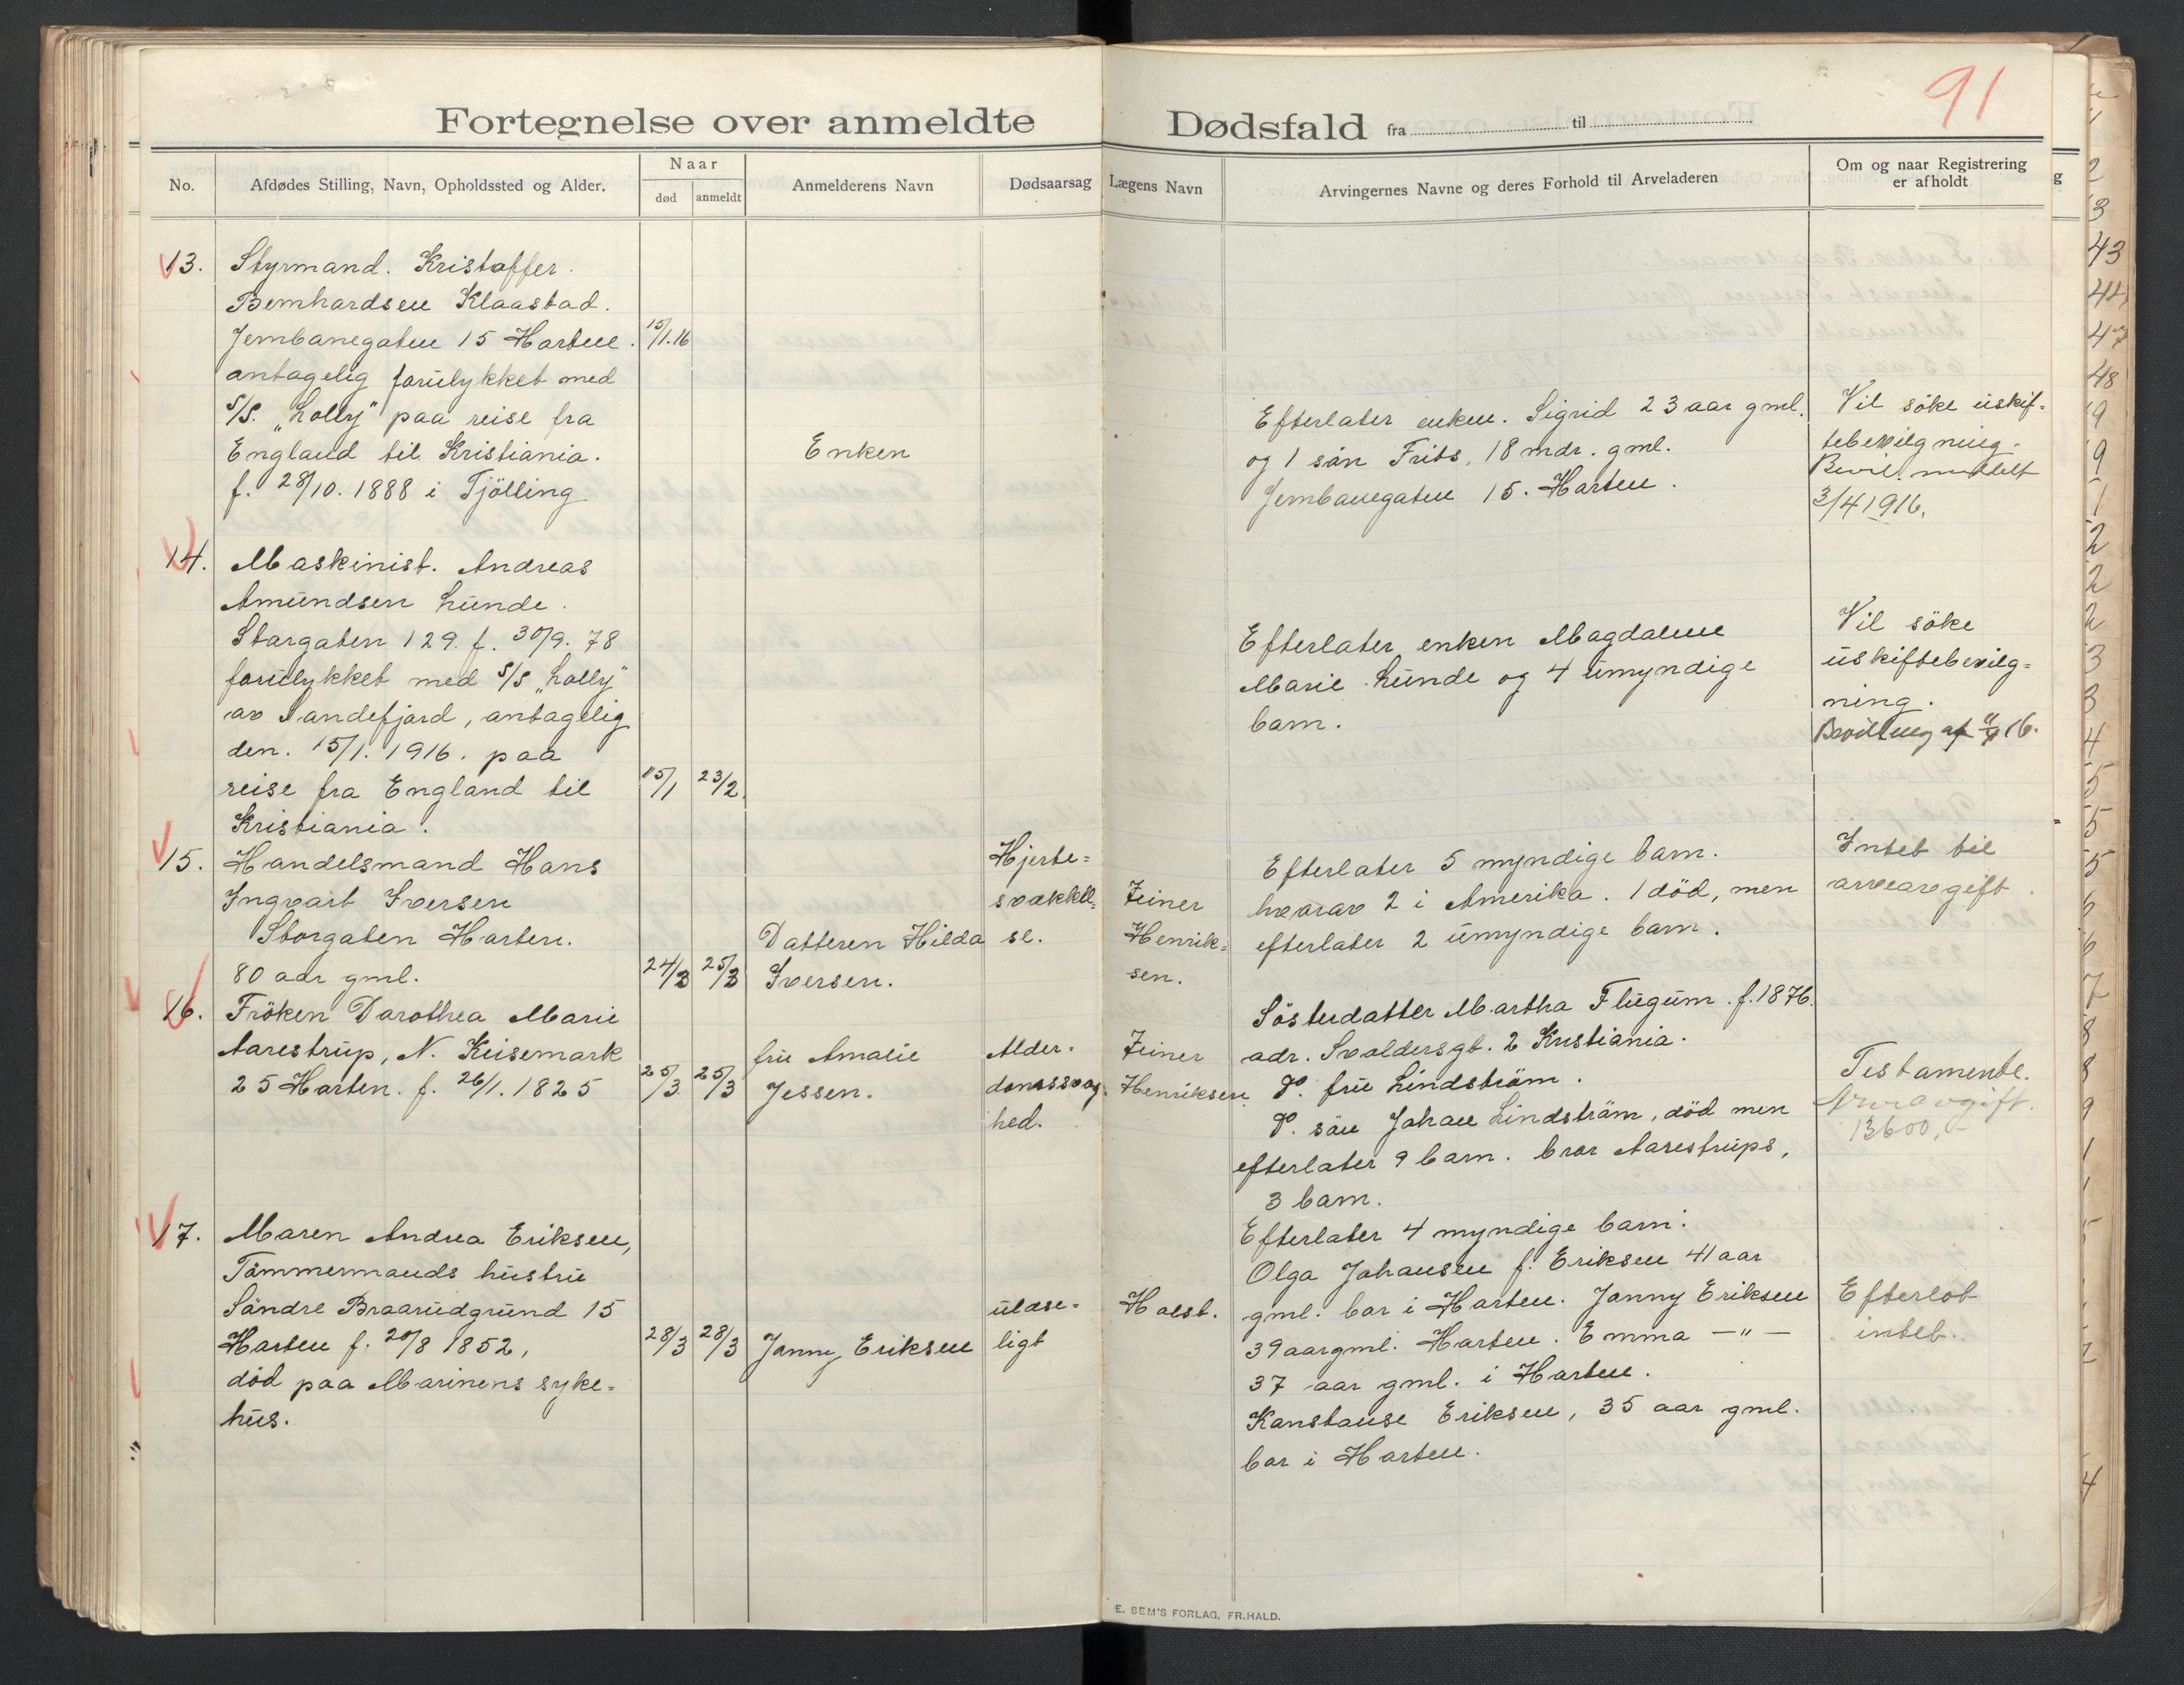 91
Fortegnelse over anmeldte Dødsfald fra til
No.
Afdødes Stilling, Navn, Opholdssted og Alder.
Naar
død
anmeldt
Anmelderens Navn
Dødsaarsag
Lægens Navn
Arvingernes Navne og deres Forhold til Arveladeren
Om og naar Registrering
er afholdt
13.
Styrmand. Kristoffer
Bernhardsen Klaastad.
Jernbanegaten 15 Horten.
antagelig forulykket med
S/S. „Lolly" paa reise fra
England til Kristiania.
f. 28/10. 1888 i Tjölling
15/1.16
Enken
Efterlater enken. Sigrid 23 aar gml.
og 1 sön Frits, 18 mdr. gml.
Jernbanegaten 15. Horten.
Vil söke uskif-
tebevilgning.
Bevil. meddelt
3/4 1916.
14.
Maskinist. Andreas
Amundsen Lunde.
Storgaten 129. f. 30/9. 78
forulykket med S/S „Lolly"
av Sandefjord, antagelig
den. 15/1. 1916. paa
reise fra England til
Kristiania.
15/1
23/2
Efterlater enken Magdalene
Marie Lunde og 4 umyndige
barn.
Vil söke
uskiftebevilg-
ning.
Bevilling af 16.
15.
Handelsmand Hans
Ingvart Iversen
Storgaten Horten.
80 aar gml.
24/3
25/3
Datteren Hilda
Iversen.
Hjerte-
svækkel-
se.
Zeiner
Henrik-
sen.
Efterlater 5 myndige barn.
hvorav 2 i Amerika. 1 död, men
efterlater 2 umyndige barn.
Intet til
arveavgift.
16.
Fröken Dorothea Marie
Aarestrup, N. Keisemark
25 Horten. f. 26/1. 1825
25/3
25/3
fru Amalie
Jessen.
Alder-
domssvag-
hed.
Zeiner
Henriksen
Sösterdatter Martha Flugum. f. 1876.
adr. Svoldersgt. 2 Kristiania.
Do. fru Lindström.
Do. sön Johan Lindström, död men
efterlater 9 barn. bror Aarestrups,
3 barn.
Testamente.
Arveavgift.
13600,-
17.
Maren Andrea Eriksen,
Tömmermands hustru
Söndre Braarudgrund 15
Horten f. 20/8 1852,
död paa Marinens syke-
hus.
28/3
28/3
Janny Eriksen
ulæse-
ligt
Holst.
Efterlater 4 myndige barn:
Olga Johansen f. Eriksen 41 aar
gml. bor i Horten. Janny Eriksen
39 aar gml. Horten. Emma —"—
37 aar gml. i Horten.
Konstanse Eriksen, 35 aar gml.
bor i Horten.
Efterlot
intet.
E. SEM'S FORLAG, FR.HALD.